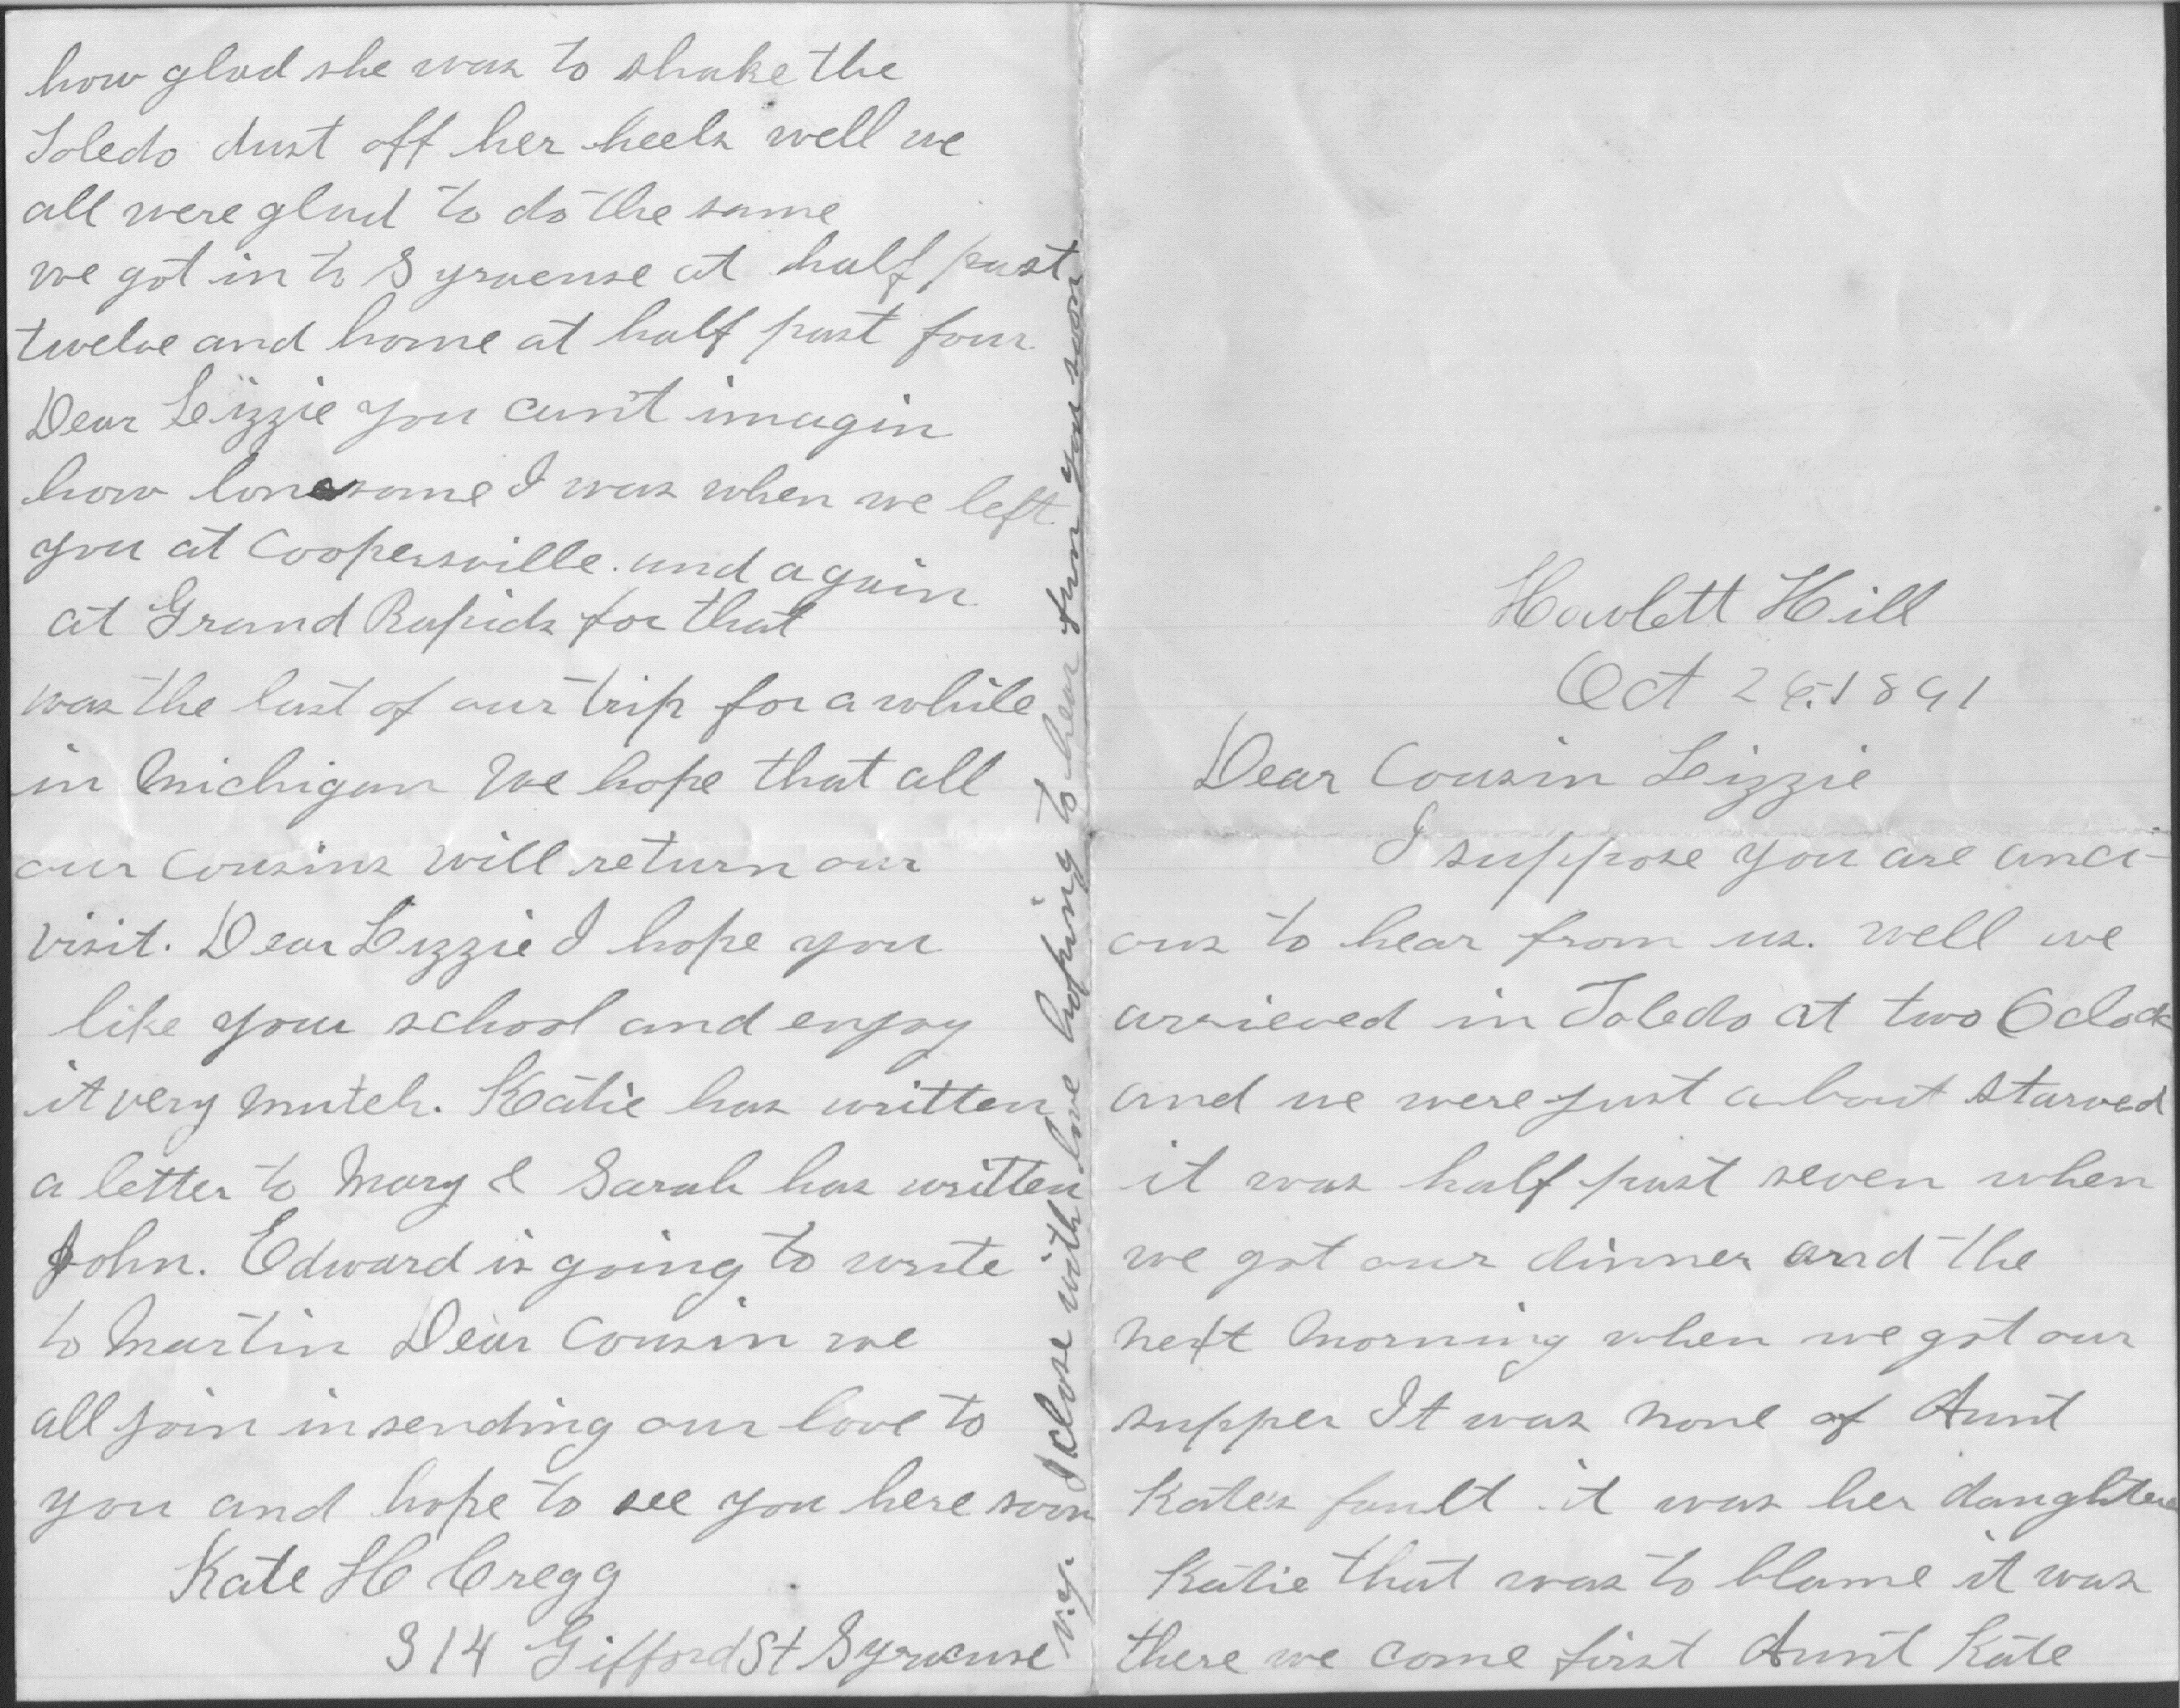 Howlett Hill
Oct 26. 1891
Dear Cousin Lizzie
I suppose you are anci-
ous to hear from us. well we
arrieved in Toledo at two Oclock
and we were just about starved
it was half past seven when
we got our dinner and the
next morning when we got our
supper It was none of Aunt
Kate's fault. it was her daughter
Katie that was to blame it was
there we come first Aunt Kate
how glad she was to shake the
Toledo dust off her heels well we
all were glad to do the same
we got in to Syracuse at half past
twelve and home at half past four
Dear Lizzie you can't imagin
how lonesome I was when we left
you at Coopersville. and again
at Grand Rapids for that
was the last of our trip for a while
in Michigan We hope that all
our cousins will return our
visit. Dear Lizzie I hope you
like your school and enjoy
it very mutch. Katie has written
a letter to Mary & Sarah has written
John. Edward is going to write
to Martin Dear Cousin we
all join in sending our love to
you and hope to see you here soon
Kate H Cregg
314 Gifford St Syracuse
N.Y. I close with love hoping to hear from you soon